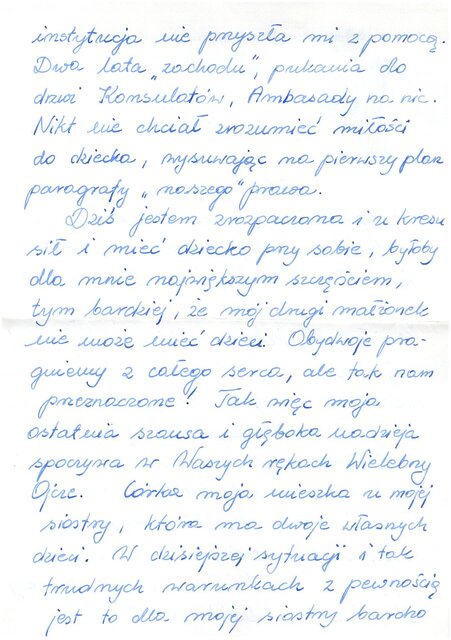 instytucja nie przyszła mi z pomocą.
Dwa lata „zachodu", pukania do
drzwi Konsulatów, Ambasady na nic.
Nikt nie chciał zrozumieć miłości
do dziecka, wysuwając na pierwszy plan
paragrafy „naszego" prawa.
Dziś jestem zrozpaczona i u kresu
sił i mieć dziecko przy sobie, byłoby
dla mnie największym szczęściem,
tym bardziej, że mój drugi małżonek
nie może mieć dzieci. Obydwoje pra-
gniemy z całego serca, ale tak nam
przeznaczone! Tak więc moja
ostatnia szansa i głęboka nadzieja
spoczywa w Waszych rękach Wielebny
Ojcze. Córka moja mieszka u mojej
siostry, która ma dwoje własnych
dzieci. W dzisiejszej sytuacji i tak
trudnych warunkach z pewnością
jest to dla mojej siostry bardzo